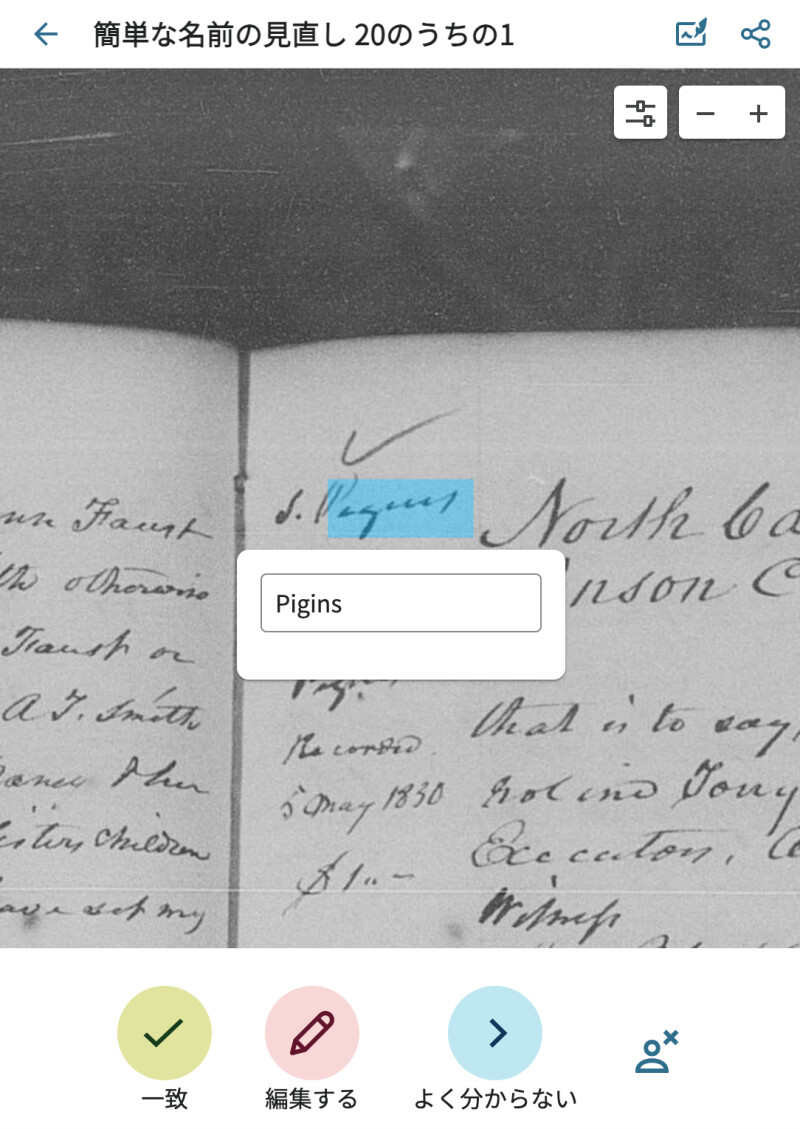 簡単な名前の見直し 20のうちの1
unn Faust
th otherwise
Faust or
A T. Smith
Raney & her
Sisters Children
have set my
S. Pigins
Pigins
Recorded
5 May 1830
$1..-
North Ca
nson C
that is to say,
hol ine Tony
Executors,
Witness
一致
編集する
よく分からない